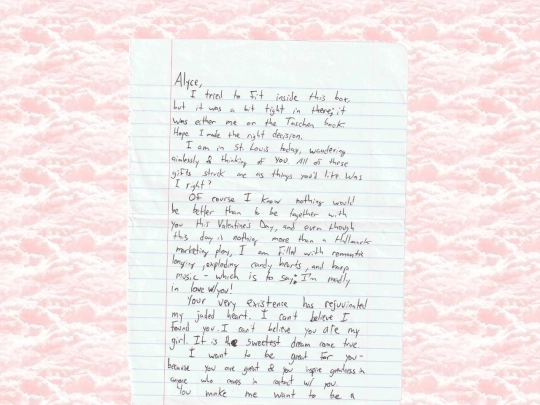 Alyce,
I tried to fit inside this box
but it was a bit tight in there; it
was either me or the Taschen book.
Hope I made the right decision.
I am in St. Louis today, wandering
aimlessly & thinking of you. All of these
gifts struck me as things you'd like. Was
I right?
Of course I know nothing would
be better than to be together with
you this Valentine's Day, and even though
this day is nothing more than a Hallmark
marketing ploy, I am filled with romantic
longing, exploding candy hearts, and
music - which is to say: I'm madly
in love w/you!
Your very existence has rejuvinated
my jaded heart. I can't believe I
found you. I can't believe you are my
girl. It is the sweetest dream come true.
I want to be great for you-
because you are great & you inspire greatness in
anyone who comes in contact w/ you.
You make me want to be a